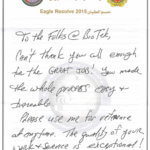 Eagle Resolve 2015
To the Folks @ BioTek,
Can't thank you all enough
for the GREAT JOB! You made
the whole process easy &
Please use me for reference
at anytime. The quality of your
work & service is exceptional!